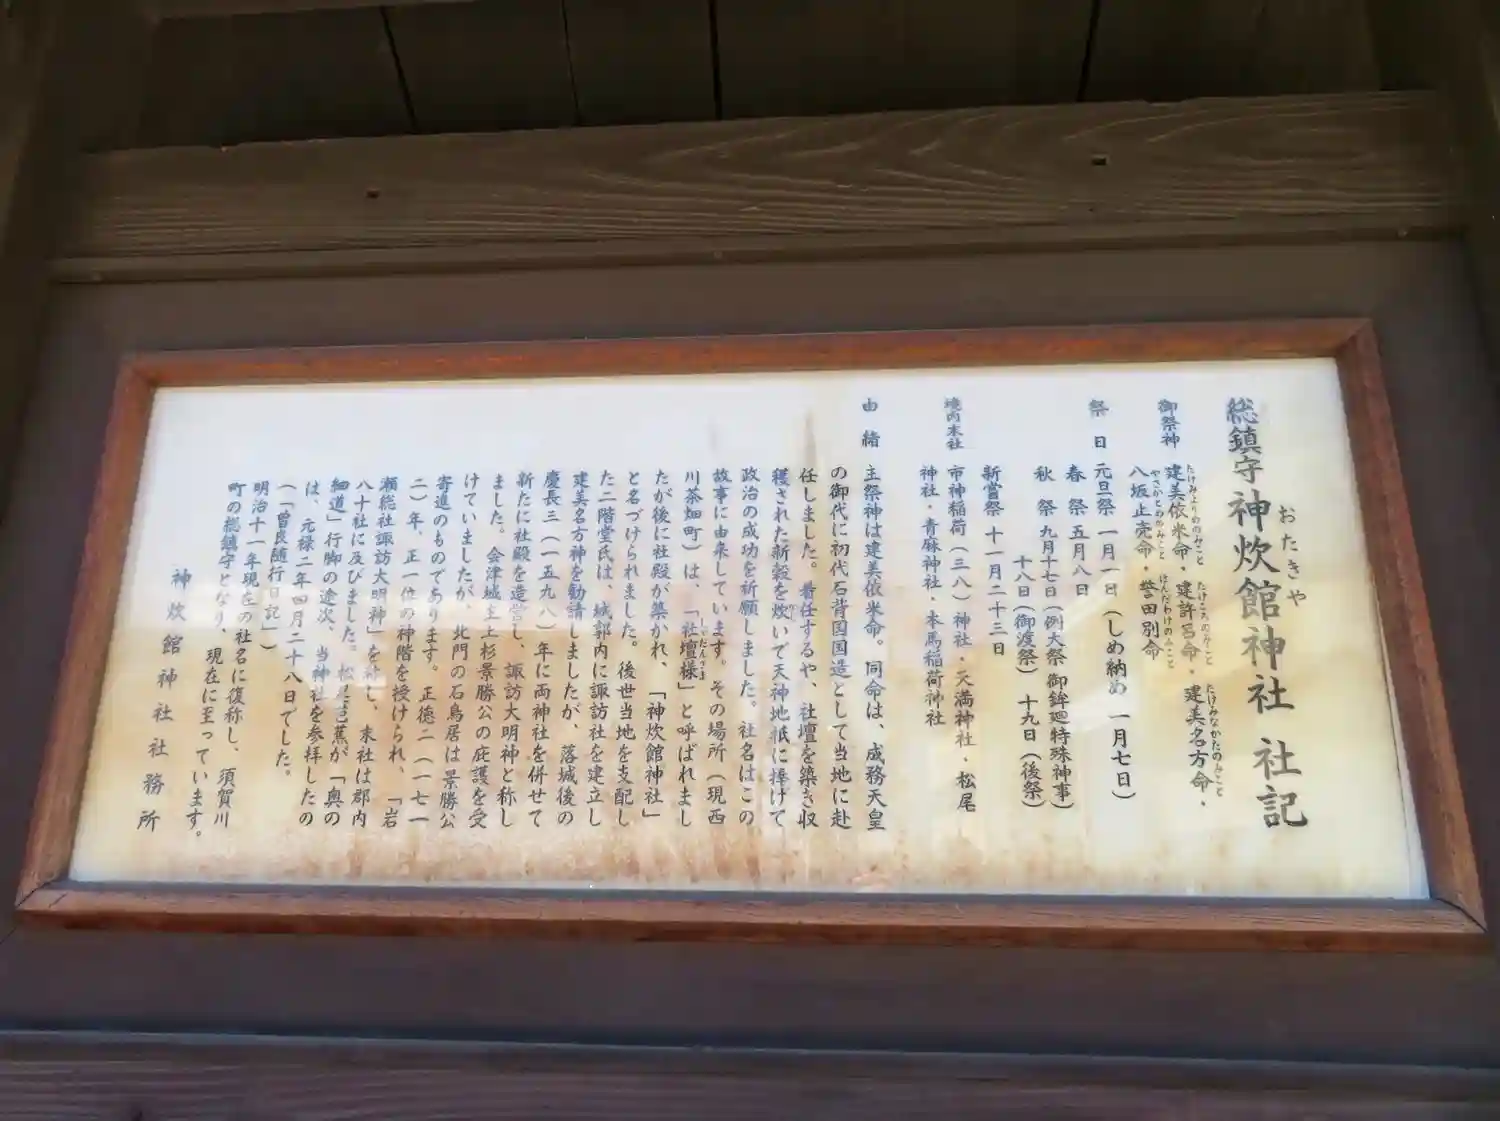 総鎮守神炊館神社 社記
おたきや
御祭神 建美依米命・建許呂命・建美名方命・
たけみよりめのみこと たけころのみこと たけみなかたのみこと
八坂止売命・誉田別命
やさかとめのみこと ほんだわけのみこと
祭日 元旦祭 一月一日(しめ納め 一月七日)
春祭 五月八日
秋祭 九月十七日(例大祭 御鉾廻特殊神事)
十八日(御渡祭) 十九日(後祭)
新嘗祭 十一月二十三日
境内末社 市神稲荷(三八)神社・天満神社・松尾
神社・青麻神社・本馬稲荷神社
由緒 主祭神は建美依米命。同命は、成務天皇
の御代に初代石背国国造として当地に赴
任しました。着任するや、社壇を築き収
穫された新穀を炊いで天神地祇に捧げて
政治の成功を祈願しました。社名はこの
故事に由来しています。その場所(現西
川茶畑町)は、「社壇様」と呼ばれまし
しゃだんさま
たが後に社殿が築かれ、「神炊館神社」
と名づけられました。後世当地を支配し
た二階堂氏は、城郭内に諏訪社を建立し
建美名方神を勧請しましたが、落城後の
慶長三(一五九八)年に両神社を併せて
新たに社殿を造営し、諏訪大明神と称し
ました。会津城主上杉景勝公の庇護を受
けていましたが、北門の石鳥居は景勝公
寄進のものであります。正徳二(一七一
二)年、正一位の神階を授けられ、「岩
瀬総社諏訪大明神」を称し、末社は郡内
八十社に及びました。松尾芭蕉が「奥の
細道」行脚の途次、当神社を参拝したの
は、元禄二年四月二十八日でした。
(「曽良随行日記」)
明治十一年現在の社名に復称し、須賀川
町の総鎮守となり、現在に至っています。
神炊館神社社務所